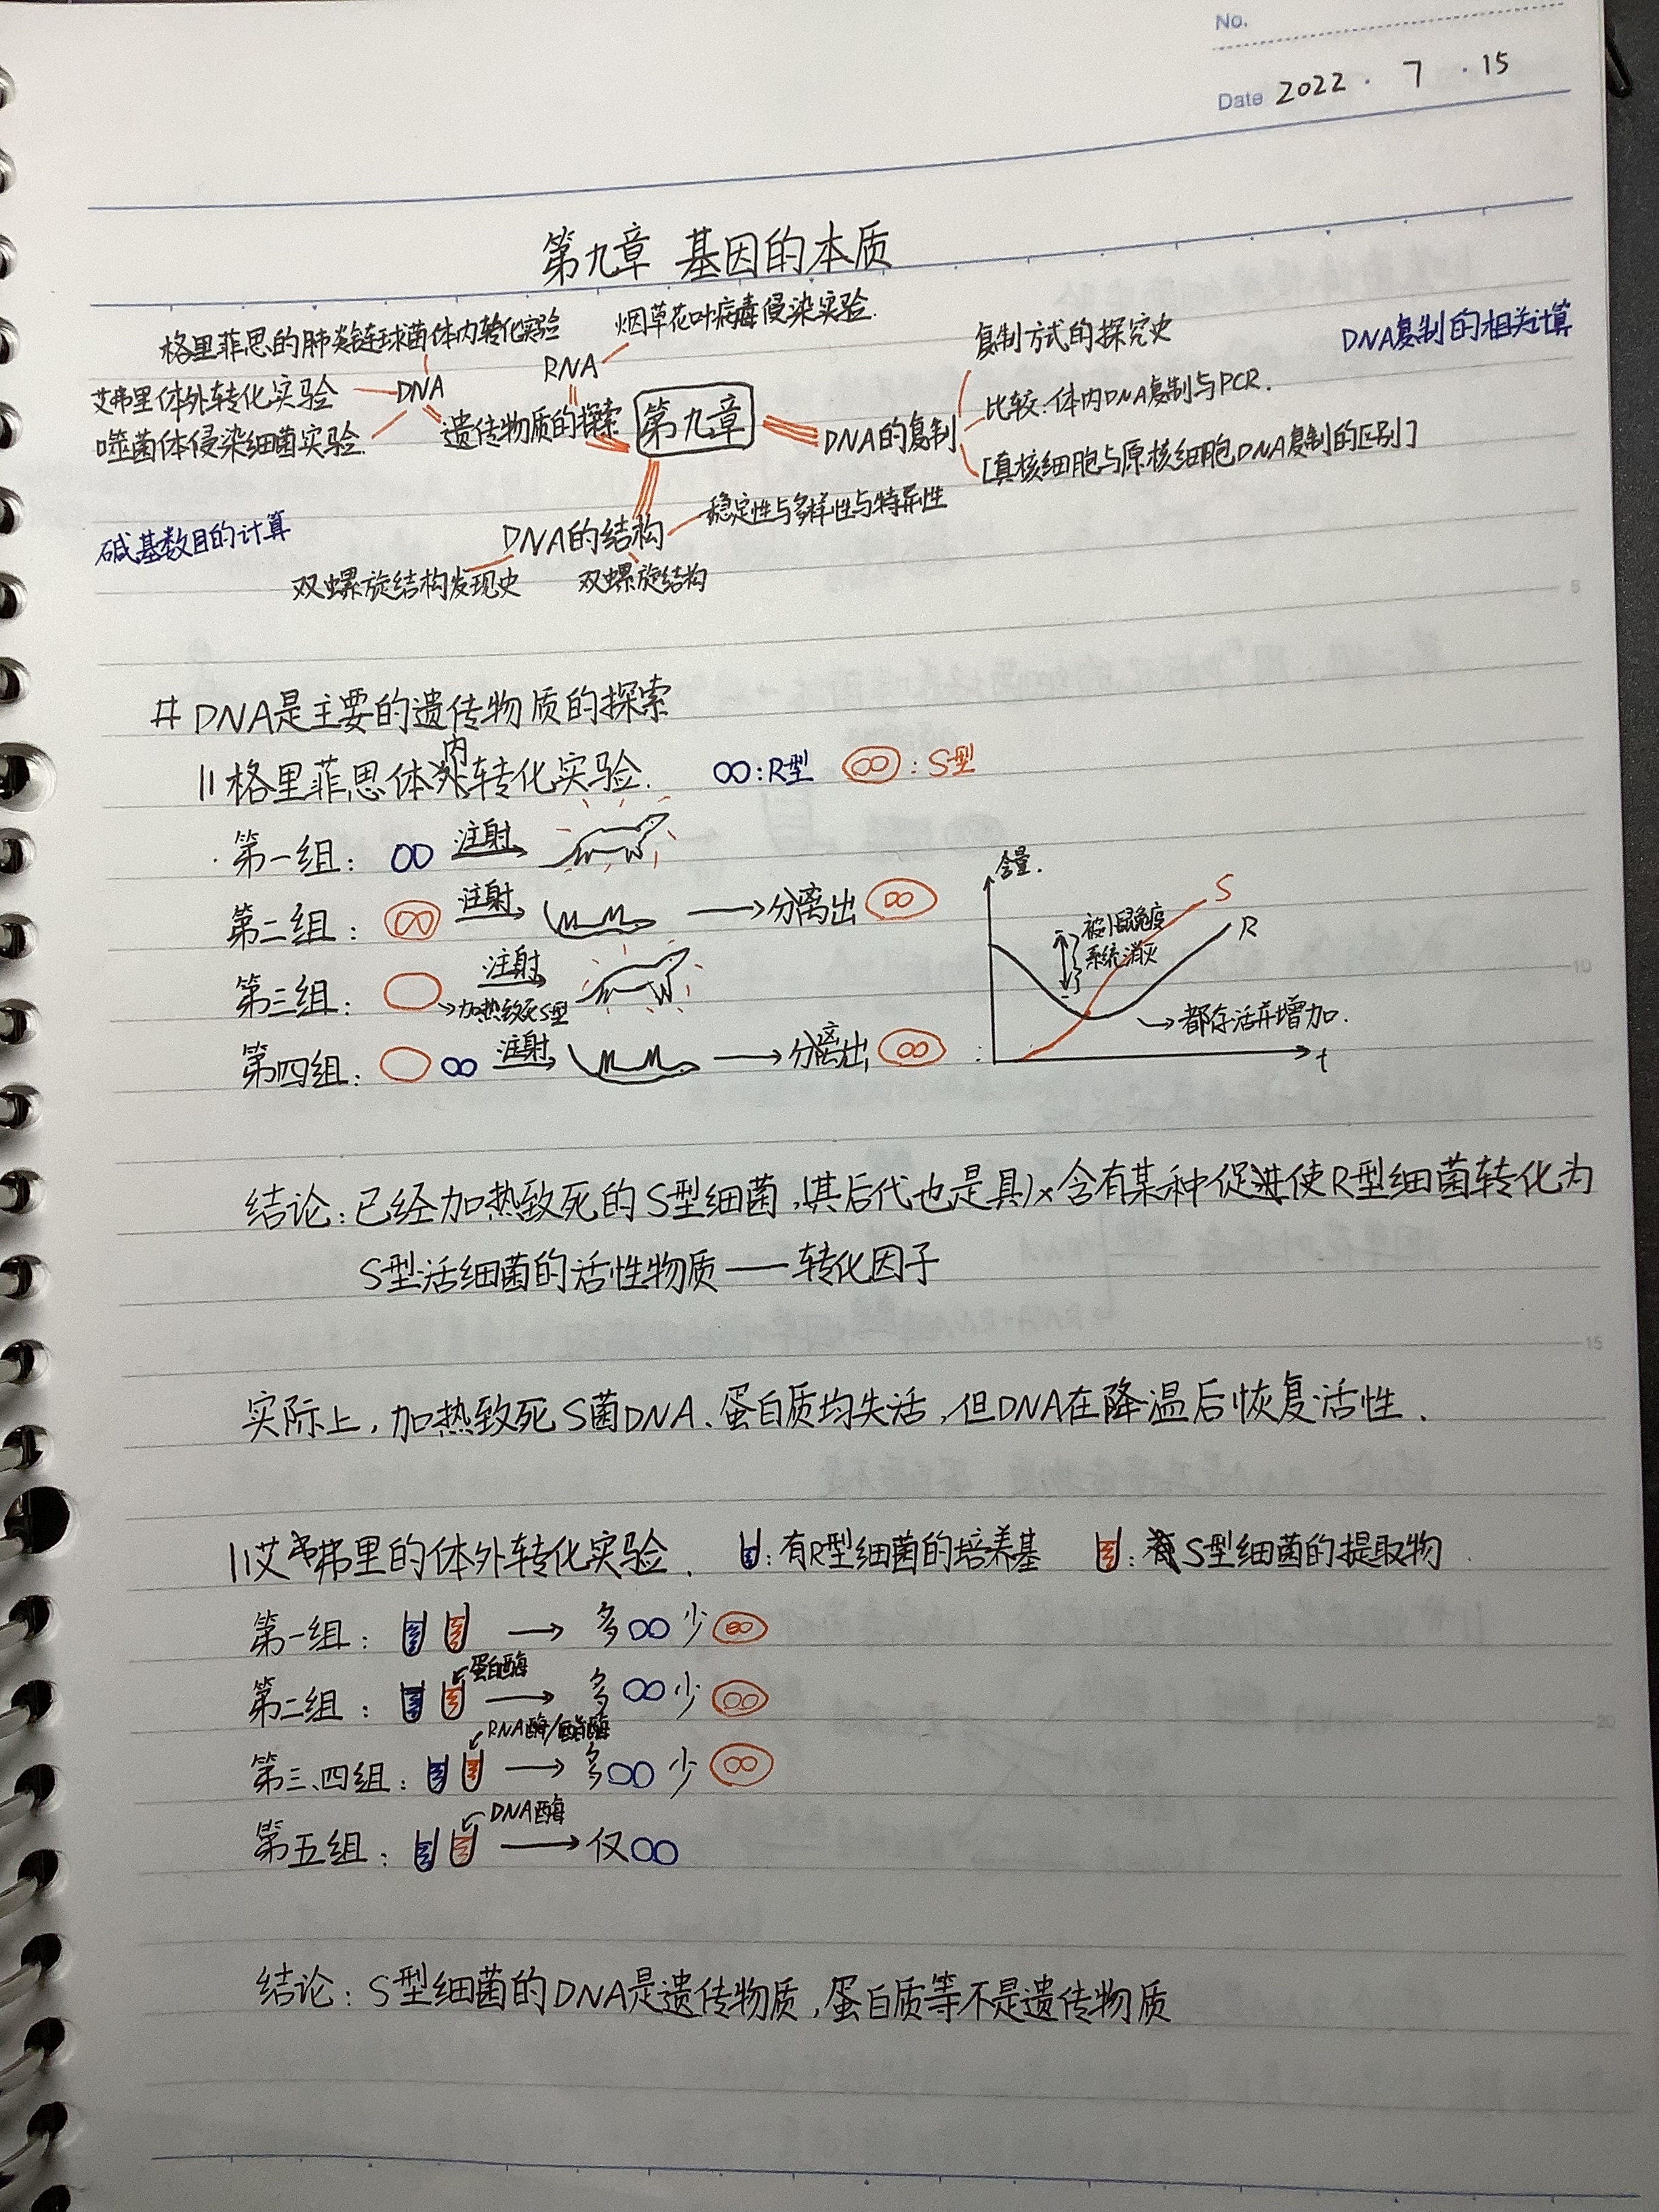 No.
Date 2022 · 7 · 15
第九章 基因的本质
格里菲思的肺炎链球菌体内转化实验
烟草花叶病毒侵染实验.
RNA
复制方式的探究史
DNA复制的相关计算
艾弗里体外转化实验
DNA
噬菌体侵染细菌实验
遗传物质的探索
第九章
DNA的复制
比较:体内DNA复制与PCR.
[真核细胞与原核细胞DNA复制的区别]
碱基数目的计算
DNA的结构
稳定性与多样性与特异性
双螺旋结构发现史
双螺旋结构
5
# DNA是主要的遗传物质的探索
|| 格里菲思体内转化实验. :R型 :S型
·第一组: 注射
第二组: 注射 分离出
第三组: 注射
加热致死S型
第四组: 注射 分离出
含量.
S
R
系统消灭
都存活并增加.
t
10
结论:已经加热致死的S型细菌,(其后代也是具)×含有某种促进使R型细菌转化为
S型活细菌的活性物质——转化因子
15
实际上,加热致死S菌DNA、蛋白质均失活,但DNA在降温后恢复活性.
||艾弗里的体外转化实验. :有R型细菌的培养基 :S型细菌的提取物
第一组: 多 少
蛋白酶
第二组: 多 少
RNA酶/酯酶
第三、四组: 多 少
20
DNA酶
第五组: 仅
结论:S型细菌的DNA是遗传物质,蛋白质等不是遗传物质